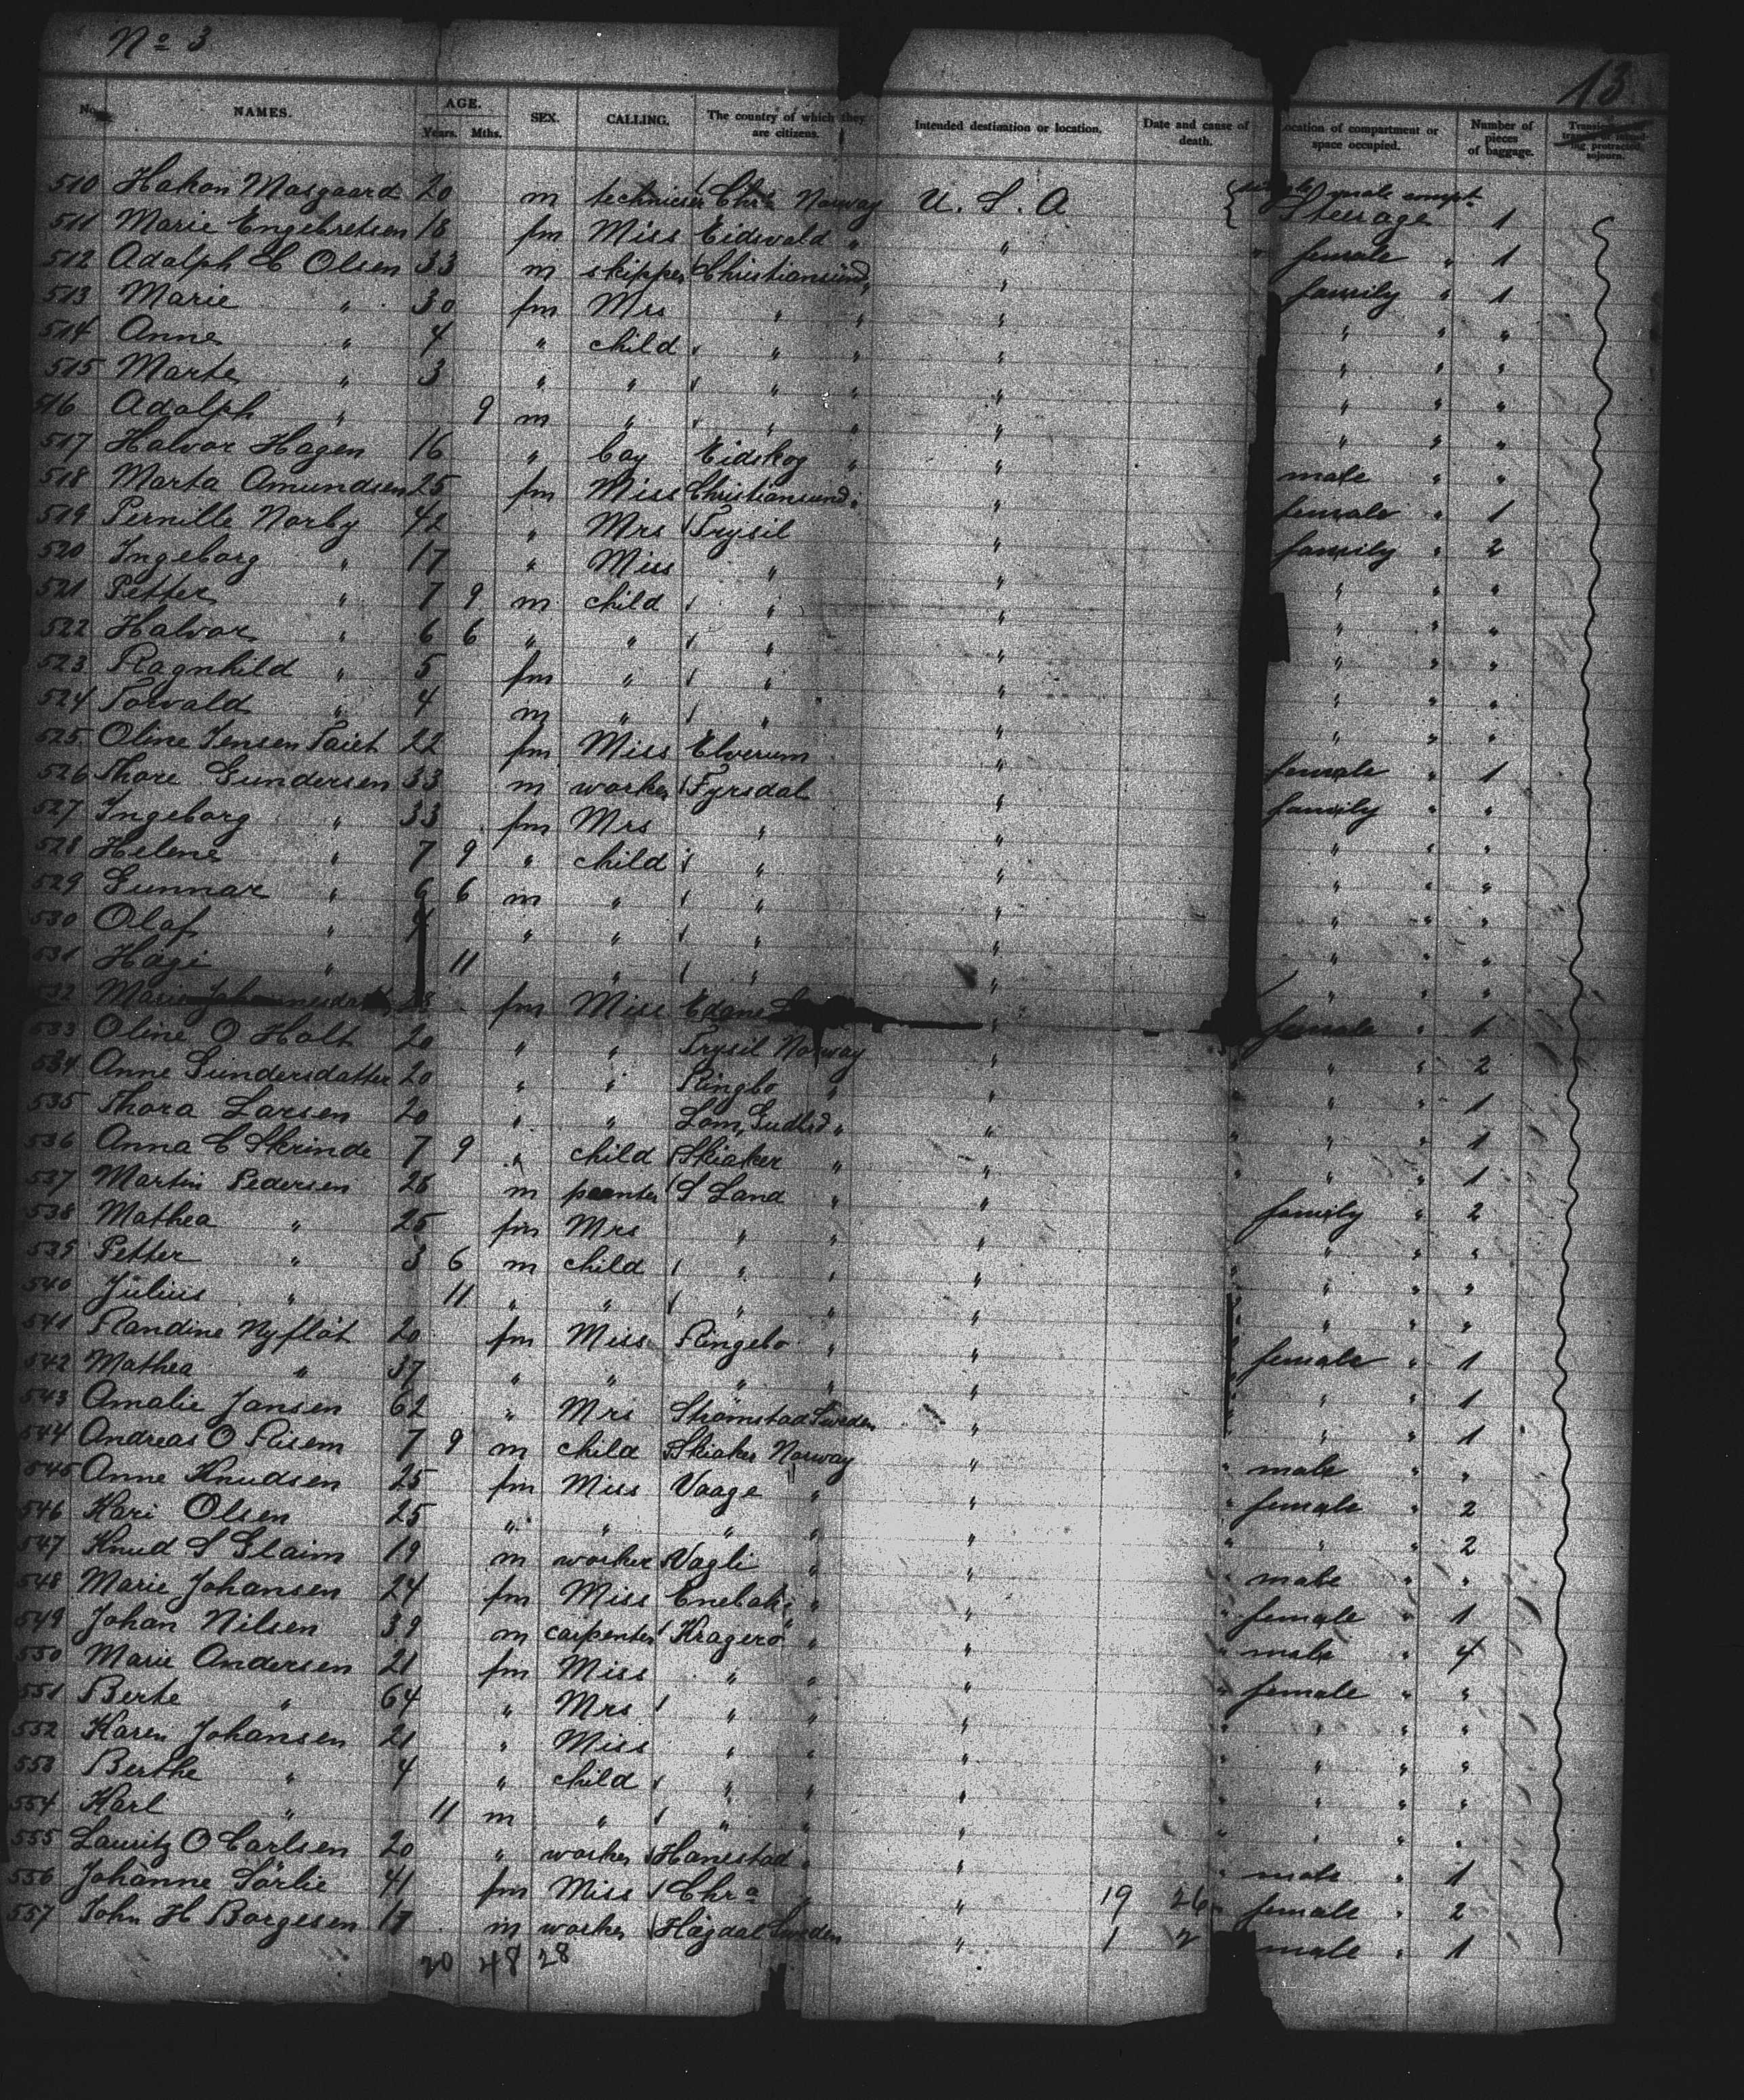 No 3
13
No. NAMES. AGE. Years. Mths. SEX. CALLING. The country of which they are citizens. Intended destination or location. Date and cause of death. Location of compartment or space occupied. Number of pieces of baggage.
510 Hakon Masgaard 20 m Chra Norway U. S. A Steerage 1
511 Marie Engebretsen 18 fm Miss Eidsvold " " female " 1
512 Adolph C Olsen 33 m skipper Christiansund " " family " 1
513 Marie " 30 fm Mrs " " " " " "
514 Anne " 4 " child " " " " " "
515 Marte " 3 " " " " " " " "
516 Adolph " 9 m " " " " " " "
517 Halvor Hagen 16 " boy Eidskog " " male " "
518 Marta Amundsen 25 fm Miss Christiansund " " female " 1
519 Pernille Norby 42 " Mrs Trysil " family " 2
520 Ingeborg " 17 " Miss " " " " "
521 Petter " 7 9 m child " " " " "
522 Halvor " 6 6 " " " " " " "
523 Ragnhild " 5 fm " " " " " "
524 Torvald " 4 m " " " " " "
525 Oline Jensen 22 fm Miss Elverum " female " 1
526 Thore Gundersen 33 m worker Fyrsdal " family " "
527 Ingeborg " 33 fm Mrs " " " " "
528 Helene " 7 9 " child " " " " "
529 Gunnar " 6 6 m " " " " " "
530 Olaf " 4 " " " " " " "
531 Hagi " 11 " " " " " "
532 Marie 28 fm Miss Edane " female " 1
533 Oline O Holt 20 " " Trysil Norway " " " 2
534 Anne Gundersdatter 20 " " Ringbo " " " " 1
535 Thora Larsen 20 " " Lom, Gudbd " " " " 1
536 Anna C Skrinde 7 9 " child Skiaker " " " " 1
537 Martin Pedersen 28 m S Land " " family " 2
538 Mathea " 25 fm Mrs " " " " " "
539 Petter " 3 6 m child " " " " " "
540 Julius " 11 " " " " " " " "
541 Randine Nyflot 20 fm Miss Ringebo " " female " 1
542 Mathea " 37 " " " " " " " 1
543 Amalie Jansen 62 " Mrs Strømstad Sweden " " " 1
544 Andreas O Risem 7 9 m child Skiaker Norway " male " "
545 Anne Knudsen 25 fm Miss Vaage " " female " 2
546 Kari Olsen 25 " " " " " " " 2
547 Knud S Glaim 19 m worker Vagli " " male " "
548 Marie Johansen 24 fm Miss Enebak " " female " 1
549 Johan Nilsen 39 m carpenter Kragerø " " male " 4
550 Marie Andersen 21 fm Miss " " " female " "
551 Berte " 64 " Mrs " " " " " "
552 Karen Johansen 21 " Miss " " " " " "
553 Berthe " 4 " child " " " " " "
554 Karl " 11 m " " " " " " "
555 Lauritz O Carlsen 20 " worker Hanestad " " male " 1
556 Johanne Sørlie 41 fm Miss Chra " " 19 26 female " 2
557 John H Borgesen 17 m worker Sweden " 1 2 male " 1
20 48 28